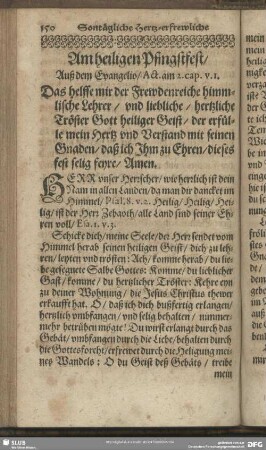 150 Sontägliche Hertz-erfrewliche
Am heiligen Pfingstfest/
Auß dem Evangelio/ Act. am 2. cap. v. 1.
Das helffe mir der Frewdenreiche himm-
lische Lehrer/ vnd liebliche/ hertzliche
Tröster Gott heiliger Geist/ der erfül-
le mein Hertz vnd Verstand mit seinen
Gnaden/ daß ich Ihm zu Ehren/ dieses
fest selig feyre/ Amen.
HERR vnser Herrscher/ wie herrlich ist dein
Nam in allen Landen/ da man dir dancket im
Himmel/ Psal. 8. v. 2. Heilig/ Heilig/ Hei-
lig/ ist der Herr Zebaoth/ alle Land sind seiner Eh-
ren voll/ Esa. 1. v. 3.
Schicke dich/ meine Seele/ der Herr sendet vom
Himmel herab seinen heiligen Geist/ dich zu leh-
ren/ leyten vnd trösten: Ach/ komme herab/ du lie-
be gesegnete Salbe Gottes: Komme/ du lieblicher
Gast/ komme/ du herzlicher Tröster: Kehre eyn
zu deiner Wohnung/ die Jesus Christus thewr
erkaufft hat. O/ daß ich dich bußfertig erlangen/
herzlich vmbfangen/ vnd selig behalten/ nimmer-
mehr betrüben möge! Du wirst erlangt durch das
Gebät/ vmbfangen durch die Liebe/ behalten durch
die Gottesforcht/ erfrewet durch die Heligung mei-
nes Wandels: O du Geist deß Gebäts/ treibe
mein
SLUB